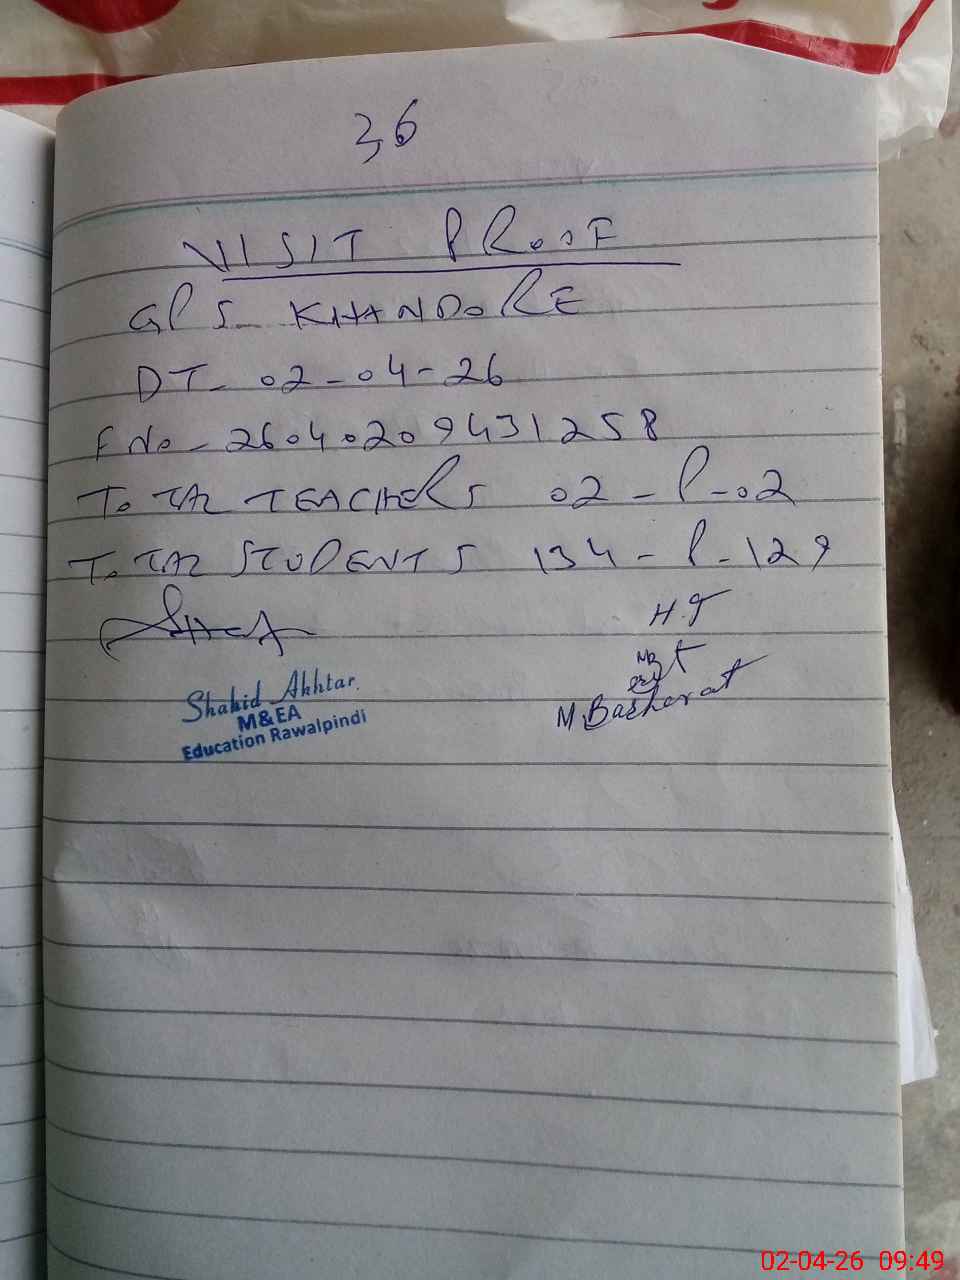 36
VISIT PROOF
GPS KHANDORE
DT- 02-04-26
F No- 26040209431258
TOTAL TEACHERS 02-P-02
TOTAL STUDENTS 134-P-129
H.T
Shahid Akhtar
M&EA
Education Rawalpindi
M.Basharat
02-04-26 09:49